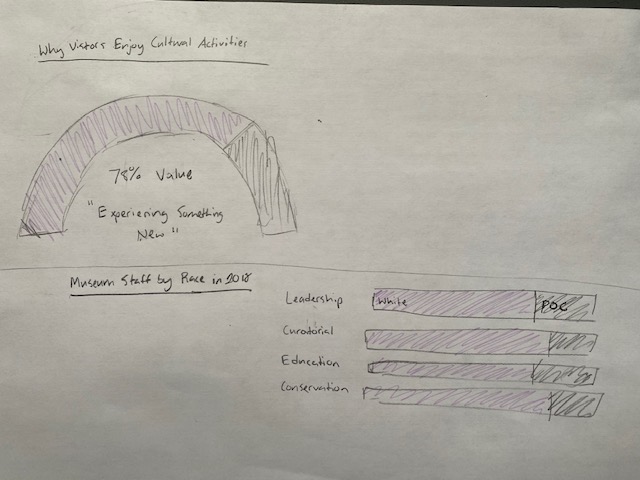 Why Vistors Enjoy Cultural Activities
78% Value
"Experiening Something
New"
Museum Staff by Race in 2018
Leadership
White
POC
Curatorial
Education
Conservation